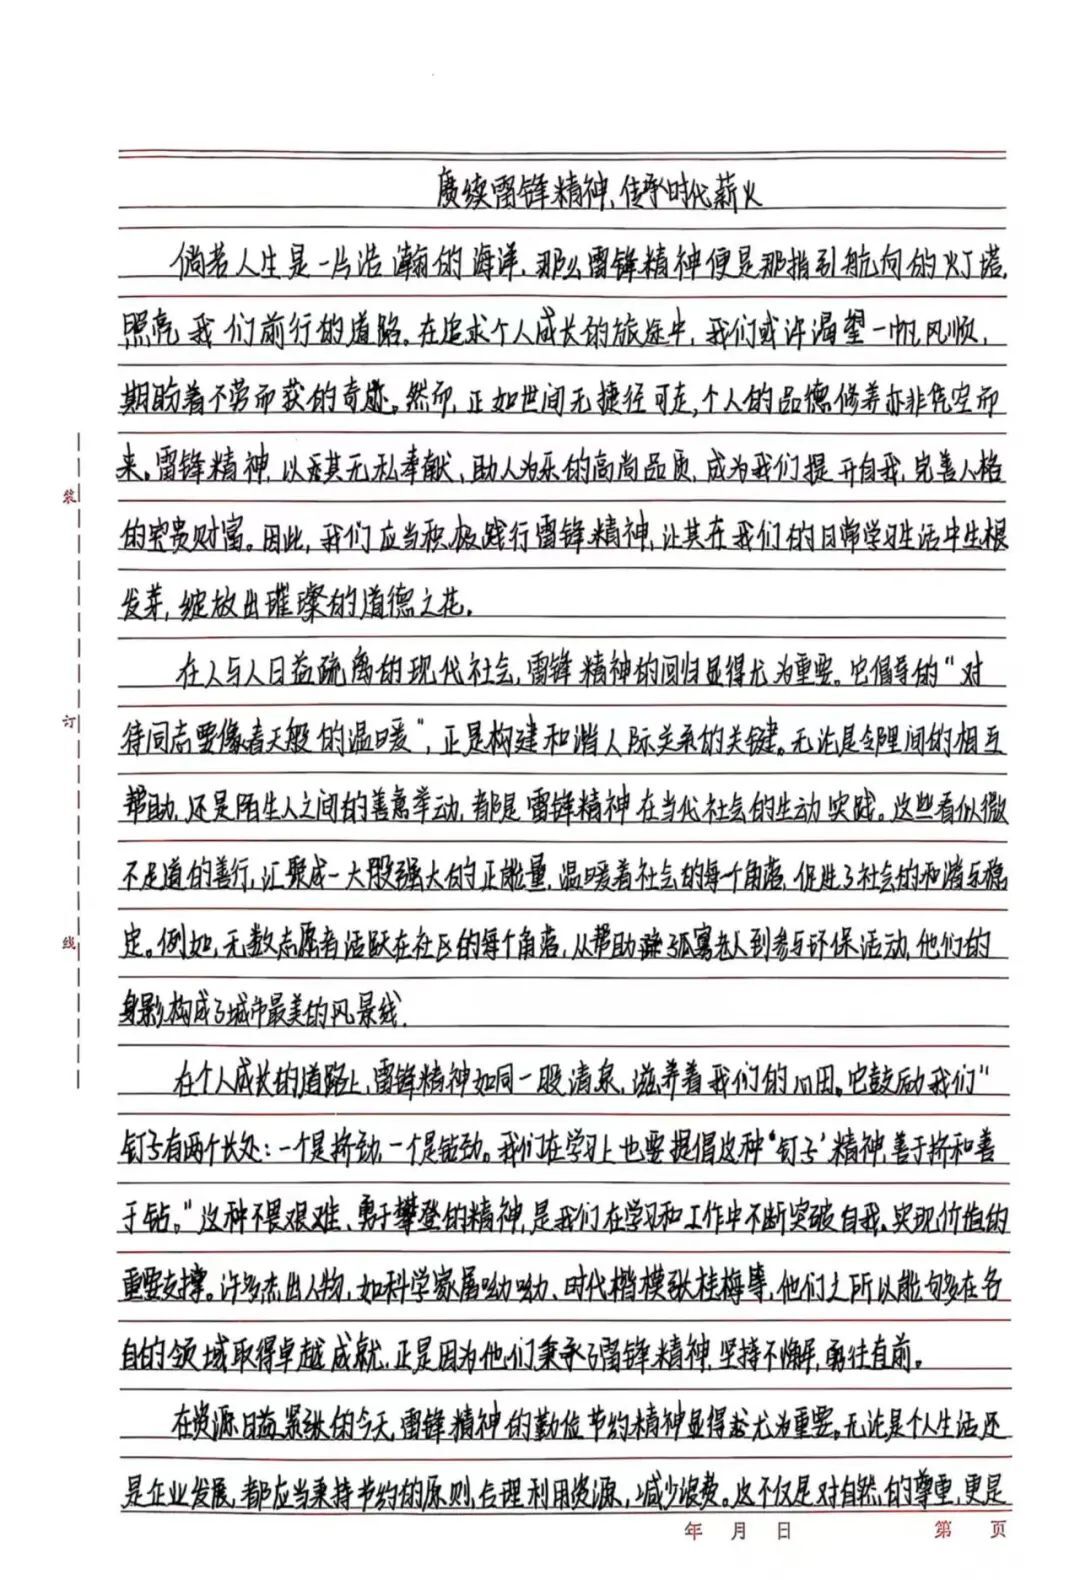 赓续雷锋精神,传承时代薪火
倘若人生是一片浩瀚的海洋,那么雷锋精神便是那指引航向的灯塔,
照亮我们前行的道路。在追求个人成长的旅途中,我们或许渴望一帆风顺,
期盼着不劳而获的奇迹。然而,正如世间无捷径可走,个人的品德修养亦非凭空而
来。雷锋精神,以其无私奉献、助人为乐的高尚品质,成为我们提升自我,完善人格
的宝贵财富。因此,我们应当积极践行雷锋精神,让其在我们的日常学习生活中生根
发芽,绽放出璀璨的道德之花。
在人与人日益疏离的现代社会,雷锋精神的回归显得尤为重要。它倡导的“对
待同志要像春天般的温暖”,正是构建和谐人际关系的关键。无论是邻里间的相互
帮助,还是陌生人之间的善意举动,都是雷锋精神在当代社会的生动实践。这些看似微
不足道的善行,汇聚成一大股强大的正能量,温暖着社会的每个角落,促进了社会的和谐与稳
定。例如,无数志愿者活跃在社区的每个角落,从帮助孤寡老人到参与环保活动,他们的
身影构成了城市最美的风景线.
在个人成长的道路上,雷锋精神如同一股清泉,滋养着我们的心田。它鼓励我们“
钉子有两个长处:一个是挤劲,一个是钻劲。我们在学习上也要提倡这种‘钉子’精神,善于挤和善
于钻。”这种不畏艰难、勇于攀登的精神,是我们在学习和工作中不断突破自我、实现价值的
重要支撑。许多杰出人物,如科学家屠呦呦、时代楷模张桂梅等,他们之所以能够在各
自的领域取得卓越成就,正是因为他们秉承了雷锋精神,坚持不懈,勇往直前。
在资源日益紧张的今天,雷锋精神的勤俭节约精神显得尤为重要。无论是个人生活还
是企业发展,都应当秉持节约的原则,合理利用资源,减少浪费。这不仅是对自然的尊重,更是
装
订
线
年 月 日 第 页